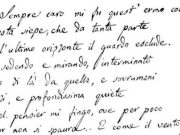 Sempre caro mi fu quest' ermo co
sta siepe, che da tanta parte
l'ultimo orizonte il guardo esclude.
sedendo e mirando, interminato
di là da quella, e sovrumani
, e profondissima quiete
pensier mi fingo, ove per poco
non si spaura. E come il vento